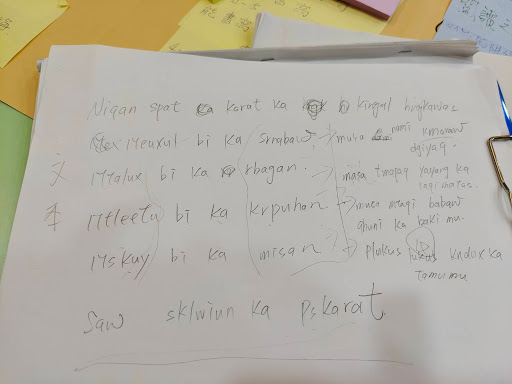 能書寫
Niqan spat ka karat ka kingal hngkawas
Meuxul bi ka srrabaw → muwa nami kmaraw dgiyaq.
文 Malux bi ka rbagan. → masa tmapaq yayung ka laqi matas.
本 Mtleetu bi ka krpuhan → babaw qhuni ka baki mu.
Mskuy bi ka misan → plukus lukus kndux ka tamu mu
Saw sklwiun ka pskarat